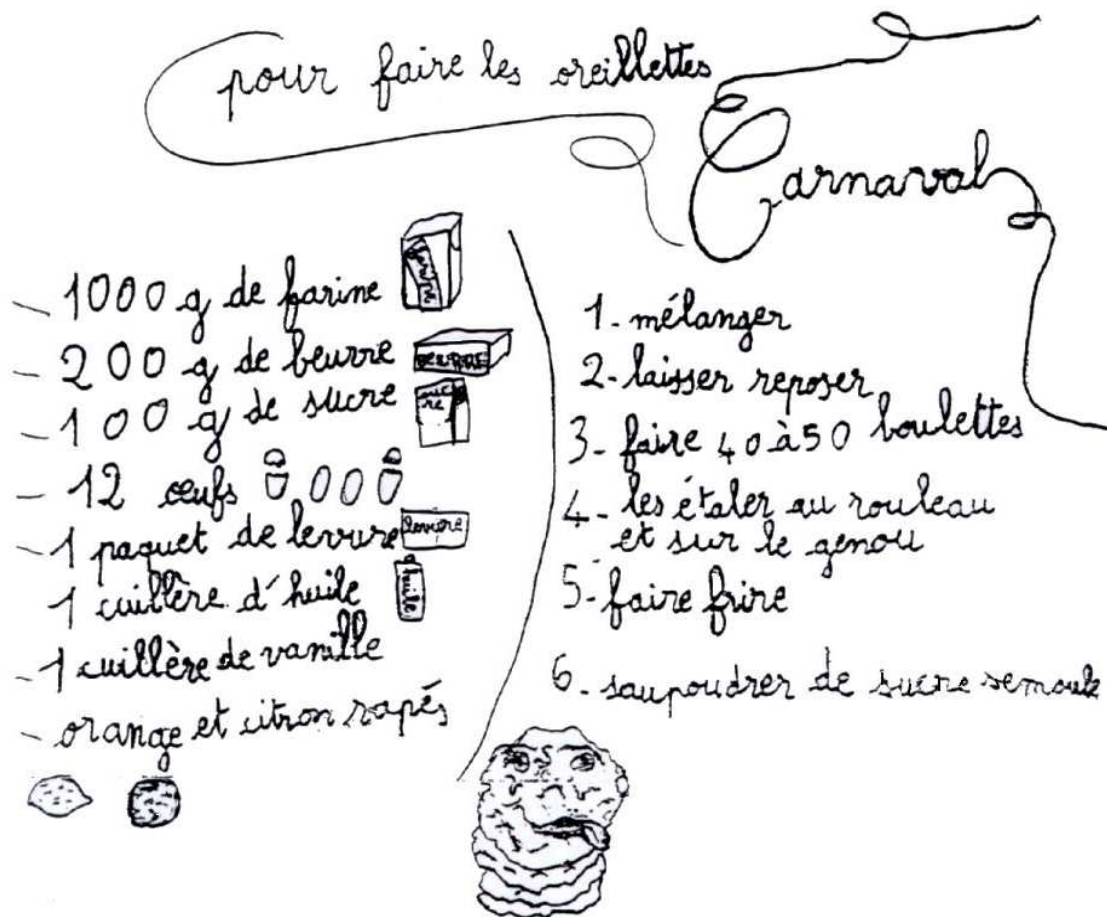 pour faire les oreillettes
Carnaval
- 1000 g de farine
farine
- 200 g de beurre
BEURRE
- 100 g de sucre
sucre
- 12 œufs
- 1 paquet de levure
levure
1 cuillère d'huile
huile
- 1 cuillère de vanille
- orange et citron rapés
1- mélanger
2- laisser reposer
3- faire 40 à 50 boulettes
4- les étaler au rouleau
et sur le genou
5- faire frire
6- saupoudrer de sucre semoule